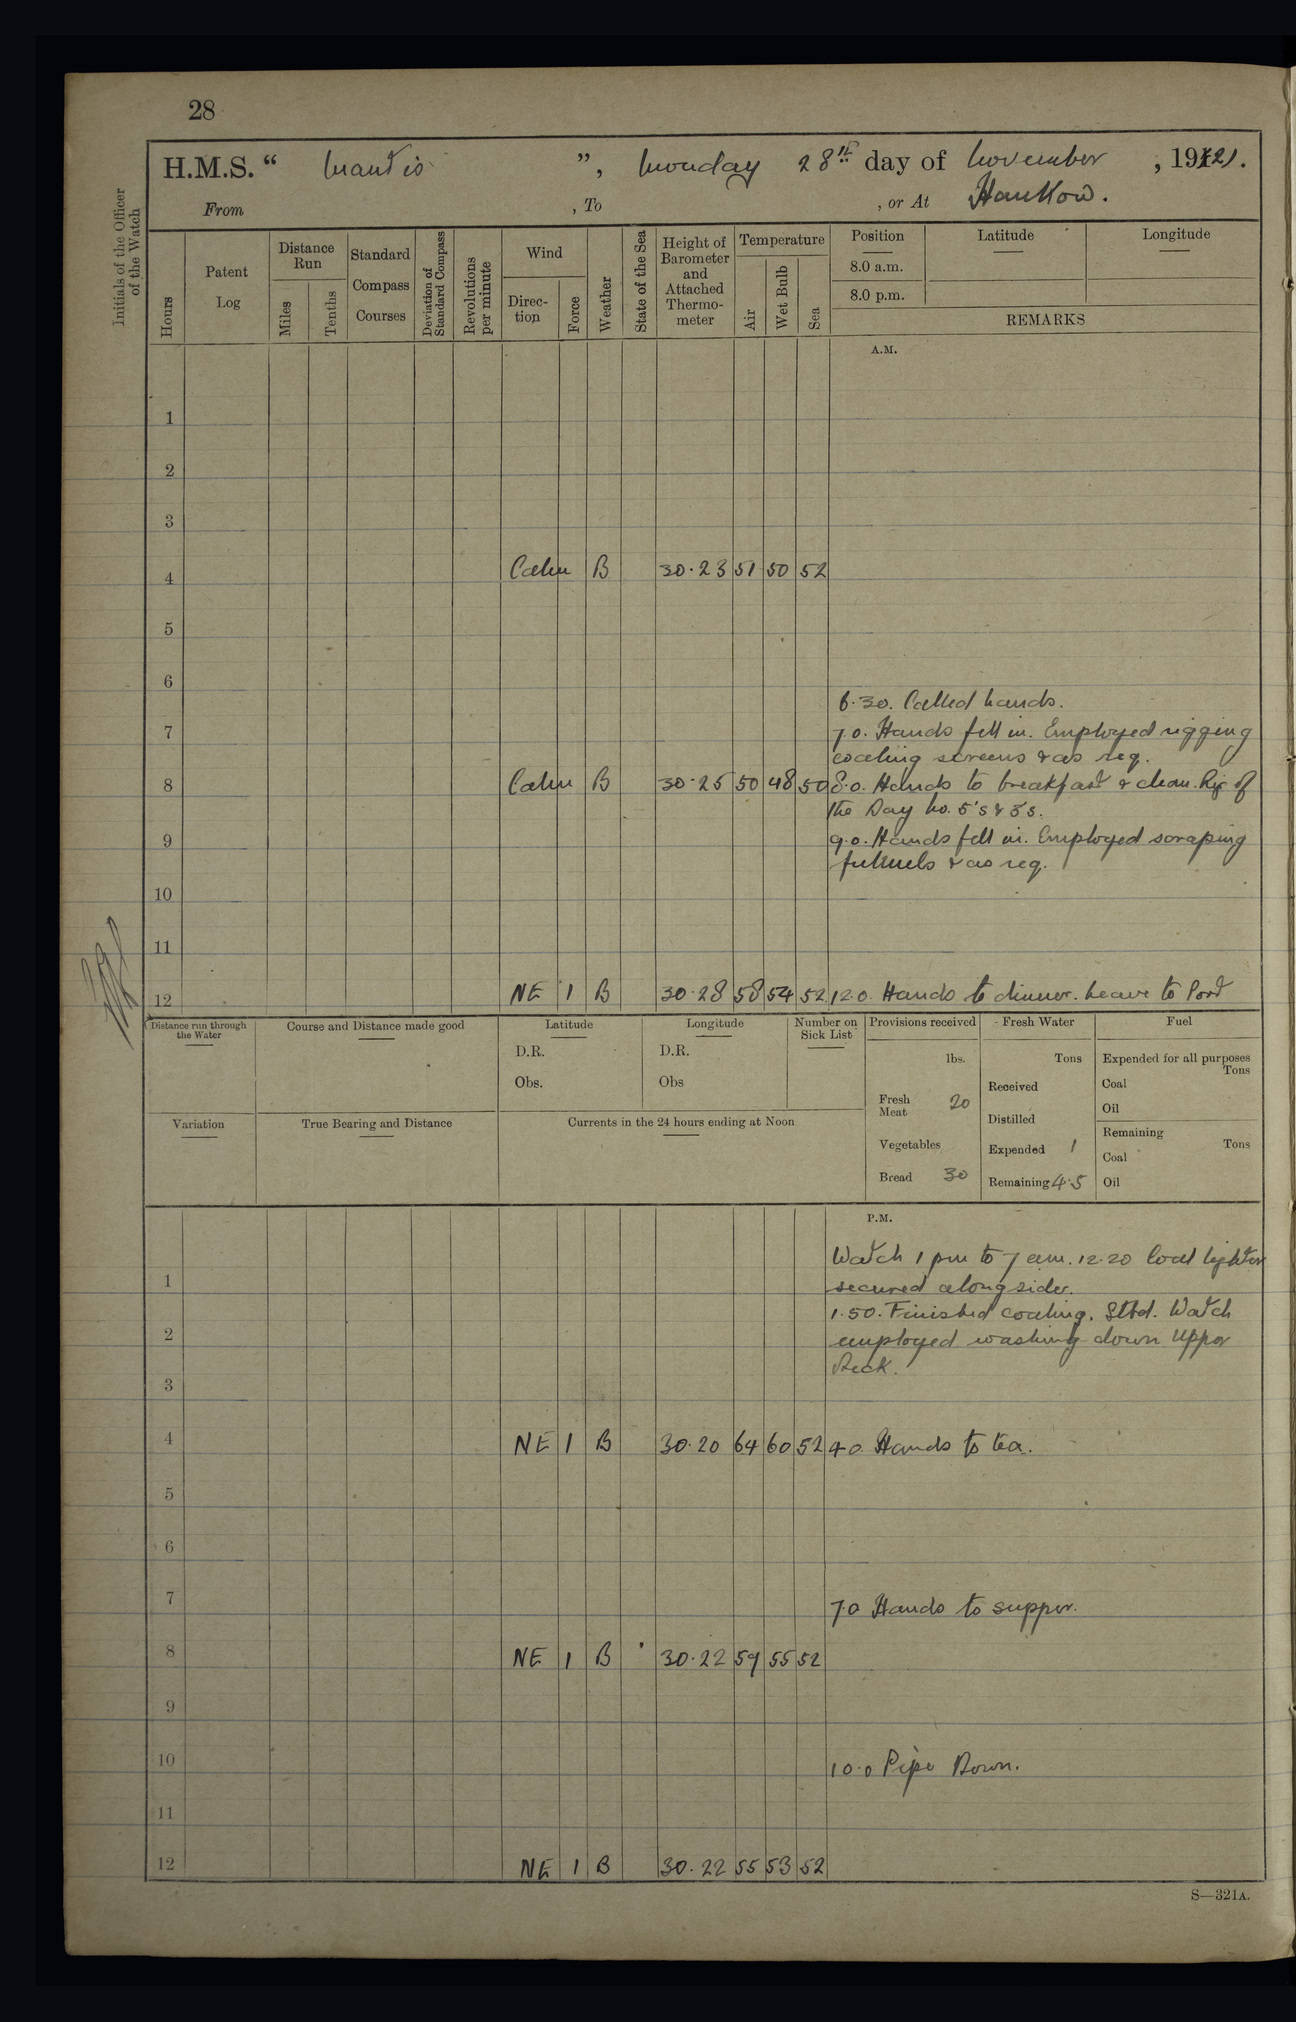 28
H.M.S. “ Mantis ”, Monday 28th day of November , 1921.
From , To , or At Hankow.
Initials of the Officer of the Watch
Hours
Patent Log
Distance Run
Miles
Tenths
Standard Compass Courses
Deviation of Standard Compass
Revolutions per minute
Wind
Direction
Force
Weather
State of the Sea
Height of Barometer and Attached Thermometer
Temperature
Air
Wet Bulb
Sea
Position Latitude Longitude
8.0 a.m.
8.0 p.m.
REMARKS
A.M.
1
2
3
4 Calm B 30.23 51 50 52
5
6
6.30. Called hands.
7 7.0. Hands fell in. Employed rigging
coaling screens & as req.
8 Calm B 30.25 50 48 50 8.0. Hands to breakfast & clean. Rig of
the Day No. 5's & 3's.
9 9.0. Hands fell in. Employed scraping
funnels & as req.
10
11
12 NE 1 B 30.28 58 54 52 12.0. Hands to dinner. Leave to Port
Distance run through the Water
Course and Distance made good
Latitude
D.R.
Obs.
Longitude
D.R.
Obs
Number on Sick List
Provisions received
lbs.
Fresh Meat 20
Vegetables
Bread 30
Fresh Water
Tons
Received
Distilled
Expended 1
Remaining 4.5
Fuel
Expended for all purposes
Tons
Coal
Oil
Remaining
Tons
Coal
Oil
Variation
True Bearing and Distance
Currents in the 24 hours ending at Noon
P.M.
Watch 1 pm to 7 am. 12.20 Coal lighter
1 secured alongside.
1.50. Finished coaling. Stbd. Watch
2 employed washing down Upper
Deck.
3
4 NE 1 B 30.20 64 60 52 4.0 Hands to tea.
5
6
7 7.0 Hands to supper.
8 NE 1 B 30.22 59 55 52
9
10 10.0 Pipe Down.
11
12 NE 1 B 30.22 55 53 52
S—321A.